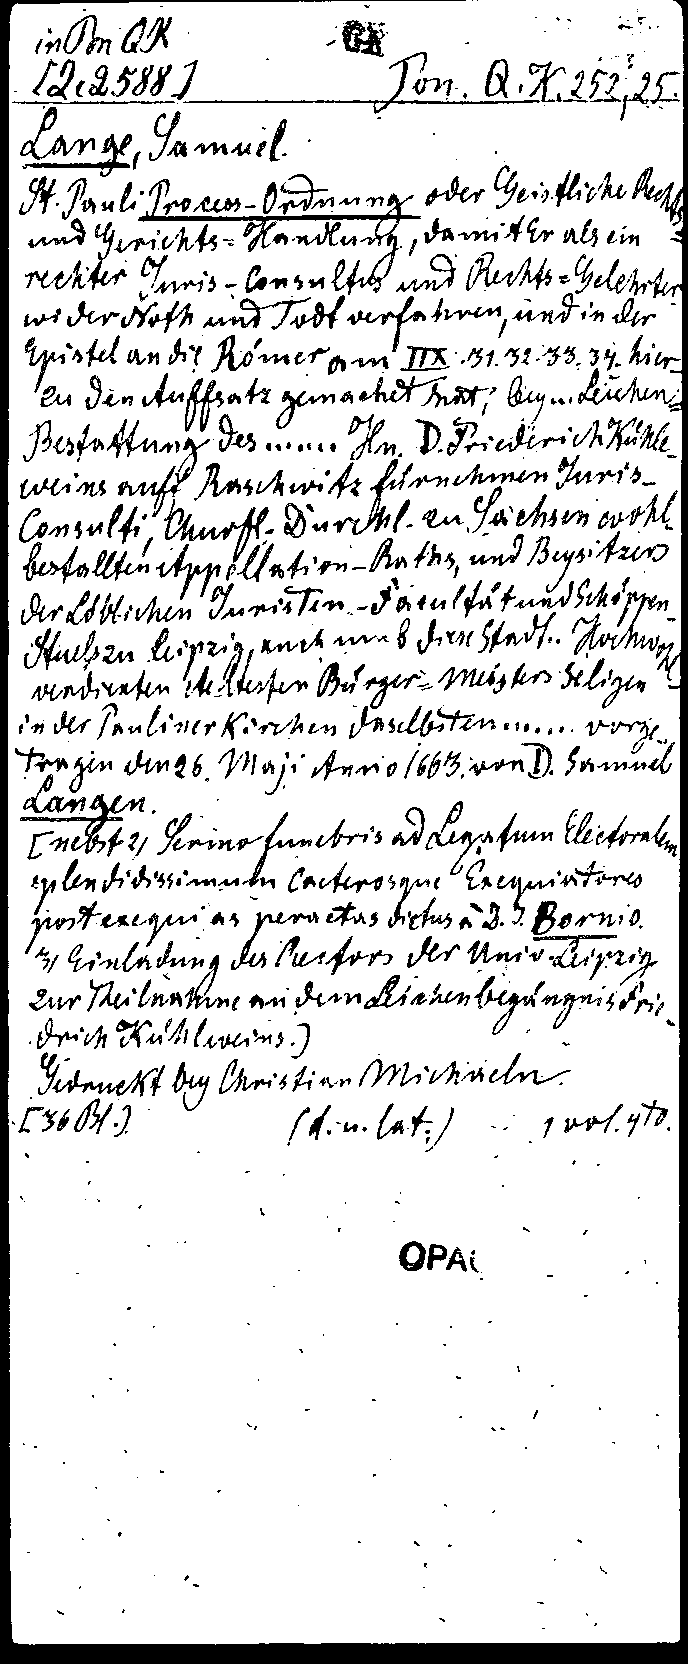 in Pon QK
GK
[Zc2588]
Pon. Q.K. 252, 25.
Lange, Samuel.
St. Pauli Process-Ordnung oder Geistliche Rechts=
und Gerichts=Handlung, damit Er als ein
rechter Juris-Consultus und Rechts=Gelehrter
wider Noth und Todt verfahren, und in der
Epistel an die Römer am IIX. 31. 32. 33. 34. hier-
zu den Auffsatz gemachet hat; bey... Leichen=
Bestattung des ..... Hn. D. Friederich Kühle-
weins auff Raschwitz fürnehmen Juris-
Consulti, Churfl. Durchl. zu Sachsen wohl-
bestallten Appellation-Raths, und Beysitzers
der Löblichen Juristen-Facultät und Schöppen
Stuels zu Leipzig, auch umb diese Stadt.. Hochwohl-
verdienten Aeltesten Bürger=Meisters Seligen
in der Pauliner Kirchen daselbsten ...... vorge-
tragen den 26. Maji Anno 1663. von D. Samuel
Langen.
[nebst 2) Sermo funebris ad Legatum Electoralem
splendidissimum caeterosque Exequiatores
post exequias peractas dictus à D. J. Bornio.
3) Einladung des Rectors der Univ. Leipzig
zur Theilnahme an dem Leichenbegängnis Frie-
drich Kühlweins.]
Gedruckt bey Christian Michaeln.
[36 Bl.]
(d. u. lat.)
1 vol. 4to.
OPAC